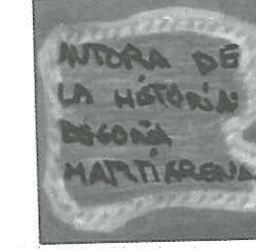 AUTORA DE
LA HISTORIA:
BEGOÑA
MARTIARENA